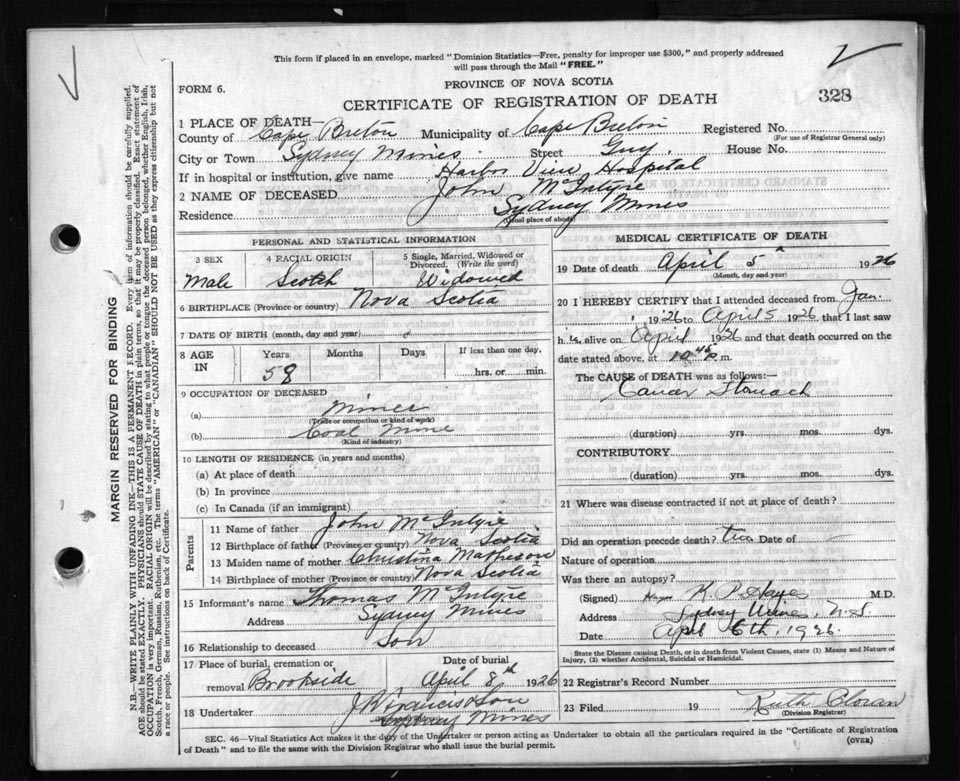 This form if placed in an envelope, marked "Dominion Statistics—Free, penalty for improper use $300," and properly addressed
will pass through the Mail "FREE."
PROVINCE OF NOVA SCOTIA
FORM 6.
CERTIFICATE OF REGISTRATION OF DEATH
328
1 PLACE OF DEATH—
County of Cape Breton Municipality of Cape Breton Registered No.
(For use of Registrar General only)
City or Town Sydney Mines Street Guy. House No.
If in hospital or institution, give name Harbor View Hospital
2 NAME OF DECEASED John McIntyre
Residence Sydney Mines
(Usual place of abode)
PERSONAL AND STATISTICAL INFORMATION
3 SEX 4 RACIAL ORIGIN 5 Single, Married, Widowed or
Divorced. (Write the word)
Male Scotch Widowed
6 BIRTHPLACE (Province or country) Nova Scotia
7 DATE OF BIRTH (month, day and year)
8 AGE IN Years Months Days If less than one day,
58 hrs. or min.
9 OCCUPATION OF DECEASED
(a) Miner
(Trade or occupation or kind of work)
(b) Coal Mine
(Kind of industry)
10 LENGTH OF RESIDENCE (in years and months)
(a) At place of death
(b) In province
(c) In Canada (if an immigrant)
Parents
11 Name of father John McIntyre
12 Birthplace of father (Province or country) Nova Scotia
13 Maiden name of mother Christina Matheson
14 Birthplace of mother (Province or country) Nova Scotia
15 Informant's name Thomas McIntyre
Address Sydney Mines
16 Relationship to deceased Son
17 Place of burial, cremation or Date of burial
removal Brookside April 8th 1926
18 Undertaker J R Francis & Son
Sydney Mines
MEDICAL CERTIFICATE OF DEATH
19 Date of death April 5 1926
(Month, day and year)
20 I HEREBY CERTIFY that I attended deceased from Jan.
1926 to April 5 1926, that I last saw
h is alive on April 1926 and that death occurred on the
date stated above, at m.
The CAUSE of DEATH was as follows:—
Cancer Stomach
(duration) yrs. mos. dys.
CONTRIBUTORY
(duration) yrs. mos. dys.
21 Where was disease contracted if not at place of death?
Did an operation precede death? Date of
Nature of operation
Was there an autopsy?
(Signed) K. P. Hayes M.D.
Address Sydney Mines, N.S.
Date April 6th, 1926.
State the Disease causing Death, or in death from Violent Causes, state (1) Means and Nature of
Injury, (2) whether Accidental, Suicidal or Homicidal.
22 Registrar's Record Number
23 Filed 19 Ruth
(Division Registrar)
SEC. 46—Vital Statistics Act makes it the duty of the Undertaker or person acting as Undertaker to obtain all the particulars required in the "Certificate of Registration
of Death" and to file the same with the Division Registrar who shall issue the burial permit. (OVER)
MARGIN RESERVED FOR BINDING
N.B.—WRITE PLAINLY WITH UNFADING INK—THIS IS A PERMANENT RECORD. Every item of information should be carefully supplied.
AGE should be stated EXACTLY. PHYSICIANS should STATE CAUSE OF DEATH in plain terms, so that it may be properly classified. Exact statement of
OCCUPATION is very important. RACIAL ORIGIN will be described by stating to what people or tongue the deceased person belonged, whether English, Irish,
Scotch, French, German, Russian, Ruthenian, etc. The terms "AMERICAN" or "CANADIAN" SHOULD NOT BE USED as they express citizenship but not
a race or people. See instructions on back of Certificate.